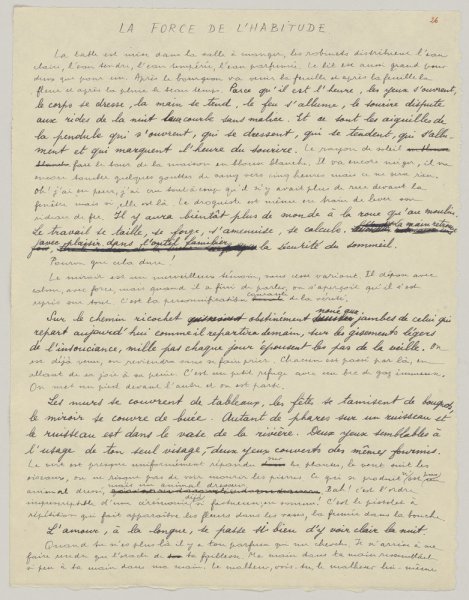 26
LA FORCE DE L'HABITUDE
La table est mise dans la salle à manger, les robinets distribuent l'eau
claire, l'eau tendre, l'eau tempérée, l'eau parfumée. Le lit est aussi grand pour
deux que pour un. Après le bourgeon va venir la feuille et après la feuille la
fleur et après la pluie le beau temps. Parce qu'il est l'heure, les yeux s'ouvrent,
le corps se dresse, la main se tend, le feu s'allume, le sourire dispute
aux rides de la nuit leur courbe sans malice. Et ce sont les aiguilles de
la pendule qui s'ouvrent, qui se dressent, qui se tendent, qui s'allu-
ment et qui marquent l'heure du sourire. Le rayon de soleil
fait le tour de la maison en blouse blanche. Il va encore neiger, il va
encore tomber quelques gouttes de sang vers cinq heures mais ce ne sera rien.
Oh! j'ai eu peur, j'ai cru tout à coup qu'il n'y avait plus de rue devant la
fenêtre mais si, elle est là. Le droguiste est même en train de lever son
rideau de fer. Il y aura bientôt plus de monde à la roue qu'au moulin.
Le travail se taille, se forge, s'amenuise, se calcule. la main retrouve
avec plaisir dans l'outil familier la sécurité du sommeil.
Pourvu que cela dure!
Le miroir est un merveilleux témoin, sans cesse variant. Il dépose avec
calme, avec force, mais quand il a fini de parler, on s'aperçoit qu'il s'est
repris sur tout. C'est la personnification courante de la vérité.
Sur le chemin ricochet obstinément noué aux jambes de celui qui
repart aujourd'hui comme il repartira demain, sur les gisements légers
de l'insouciance, mille pas chaque jour épousent les pas de la veille. On
est déjà venu, on reviendra sans se faire prier. Chacun est passé par là, en
allant de sa joie à sa peine. C'est un petit refuge avec un bec de gaz immense.
On met un pied devant l'autre et on est parti.
Les murs se couvrent de tableaux, les fêtes se tamisent de bouquets,
le miroir se couvre de buée. Autant de phares sur un ruisseau et
le ruisseau est dans le vase de la rivière. Deux yeux semblables à
l'usage de ton seul visage, deux yeux couverts des mêmes fourmis.
Le vert est presque uniformément répandu sur les plantes, le vent suit les
oiseaux, on ne risque pas de voir mourir les pierres. Ce qui se produit
mais un animal dressé. Bah! c'est l'ordre
C'est le pistolet à
répétition qui fait apparaître les fleurs dans les vases, la fumée dans la bouche.
L'amour, à la longue, se passe si bien d'y voir clair la nuit.
Quand tu n'es plus là il y a ton parfum qui me cherche. Je n'arrive à me
faire rendre que l'oracle de ta faiblesse. Ma main dans ta main ressemblait
si peu à ta main dans ma main. Le malheur, vois-tu, le malheur lui-même